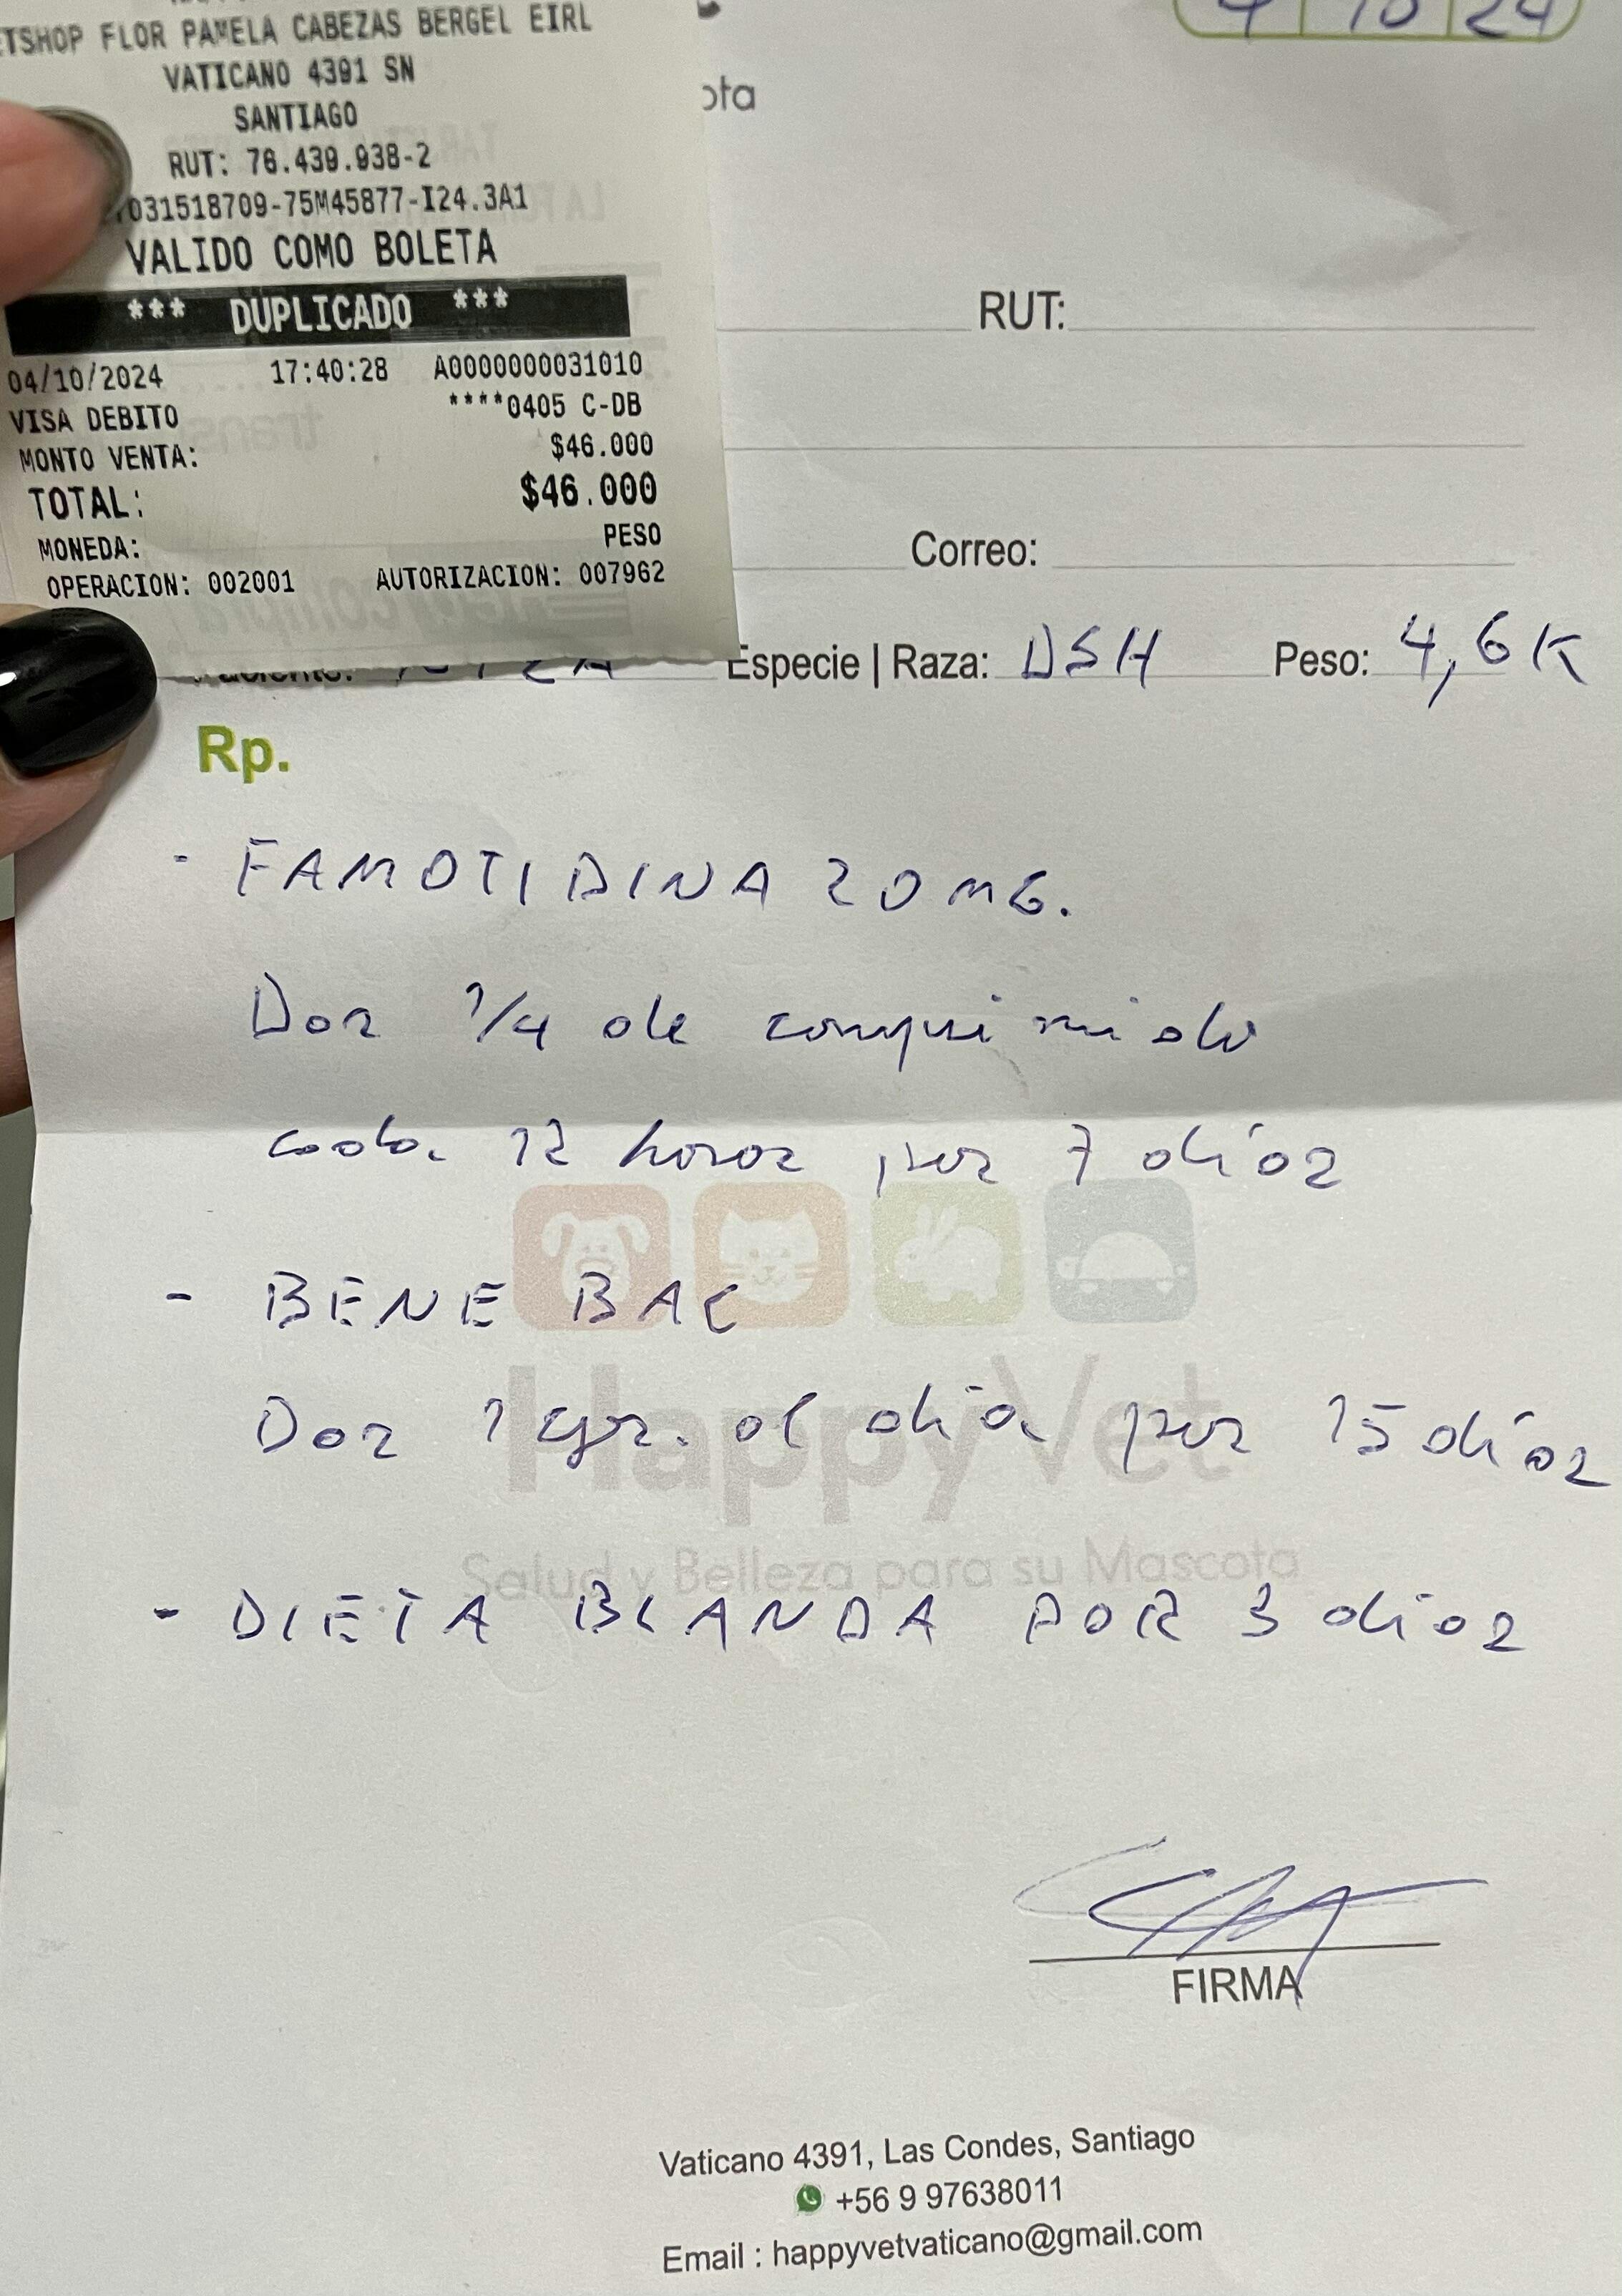 ETSHOP FLOR PAMELA CABEZAS BERGEL EIRL
VATICANO 4391 SN
SANTIAGO
RUT: 76.439.938-2
031518709-75M45877-I24.3A1
VALIDO COMO BOLETA
*** DUPLICADO ***
04/10/2024 17:40:28 A0000000031010
VISA DEBITO ****0405 C-DB
MONTO VENTA: $46.000
TOTAL: $46.000
MONEDA: PESO
OPERACION: 002001 AUTORIZACION: 007962
4 10 24
ota
RUT:
Correo:
Especie | Raza: DSH Peso: 4,6 K
Rp.
- FAMOTIDINA 20 MG.
Dar 1/4 de comprimido
cada 12 horas por 7 días
- BENE BAC
Dar 1 gr. al día por 15 días
- DIETA BLANDA POR 3 días
HappyVet
Salud y Belleza para su Mascota
FIRMA
Vaticano 4391, Las Condes, Santiago
+56 9 97638011
Email : happyvetvaticano@gmail.com